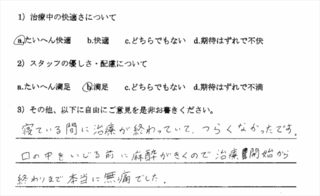 1) 治療中の快適さについて
a.たいへん快適 b.快適 c.どちらでもない d.期待はずれで不快
2) スタッフの優しさ・配慮について
a.たいへん満足 b.満足 c.どちらでもない d.期待はずれで不満
3) その他、以下に自由にご意見を是非お書きください。
寝ている間に治療が終わっていて、つらくなかったです。
口の中をいじる前に麻酔がきくので治療開始から
終わりまで本当に無痛でした。